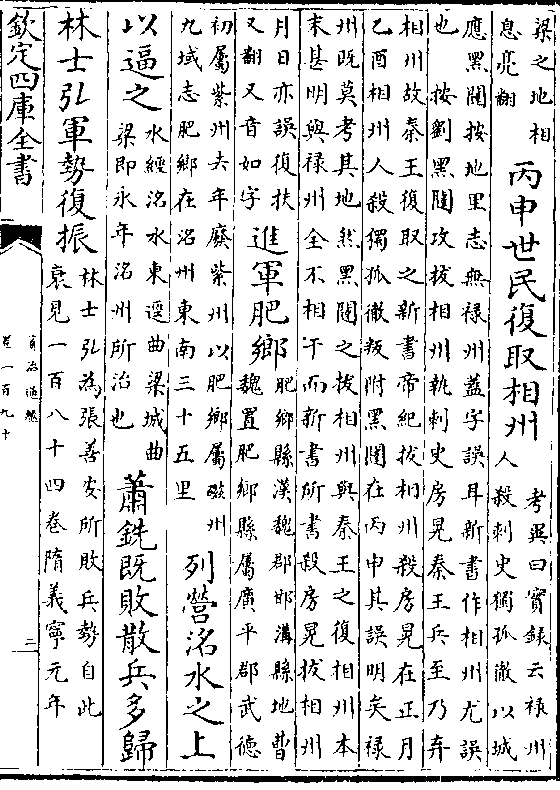 梁之地相
息亮翻
丙申世民復取相州
考異曰實録云禄州
人殺刺史獨孤徹以城
應黑闥按地里志無禄州蓋字誤耳新書作相州尤誤
也 按劉黑闥攻拔相州執刺史房晃秦王兵至乃弃
相州故秦王復取之新書帝紀拔相州殺房晃在正月
乙酉相州人殺獨孤徹叛附黑闥在丙申其誤明矣禄
州既莫考其地然黑闥之拔相州與秦王之復相州本
末甚明與禄州全不相干而新書所書殺房晃拔相州
月日亦誤復扶
又翻又音如字
進軍肥鄉
肥鄉縣漢魏郡邯溝縣地曹
魏置肥鄉縣屬廣平郡武德
初屬紫州去年廢紫州以肥鄉屬磁州
九域志肥鄉在洺州東南三十五里
列營洺水之上
以逼之
水經洺水東逕曲梁城曲
梁即永年洺州所治也
蕭銑既敗散兵多歸
林士弘軍勢復振
林士弘為張善安所敗兵勢自此
衰見一百八十四卷隋義寧元年
欽定四庫全書
資治通鑑
卷一百九十
三